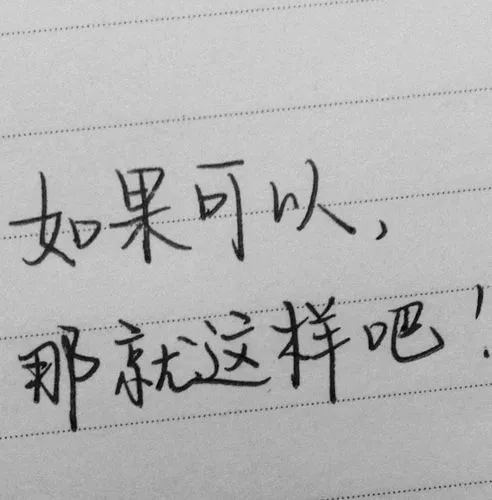 如果可以，
那就这样吧！